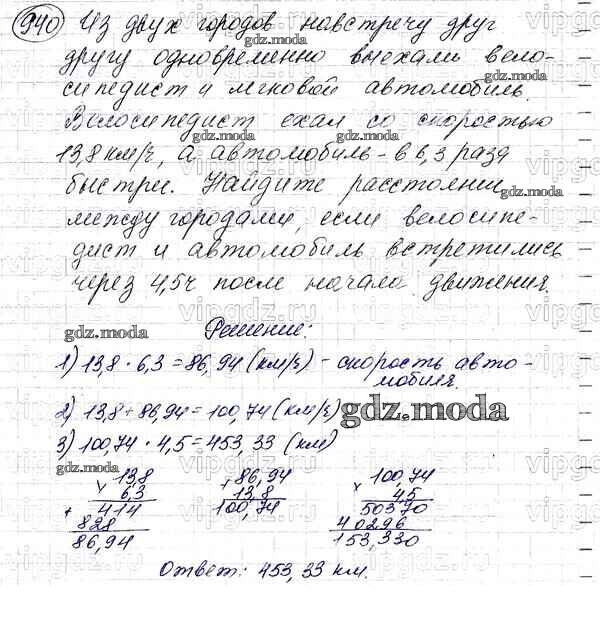 940 Из двух городов навстречу друг
другу одновременно выехали вело-
сипедист и легковой автомобиль.
Велосипедист ехал со скоростью
13,8 км/ч, а автомобиль - в 6,3 раза
быстрее. Найдите расстояние
между городами, если велосипе-
дист и автомобиль встретились
через 4,5ч после начала движения.
Решение:
1) 13,8 · 6,3 = 86,94 (км/ч) - скорость авто-
мобиля.
2) 13,8 + 86,94 = 100,74 (км/ч)
3) 100,74 · 4,5 = 453,33 (км)
13,8
× 6,3
+ 414
828
86,94
+ 86,94
13,8
100,74
× 100,74
4,5
50370
40296
453,330
Ответ: 453,33 км.
gdz.moda
vipgdz.com